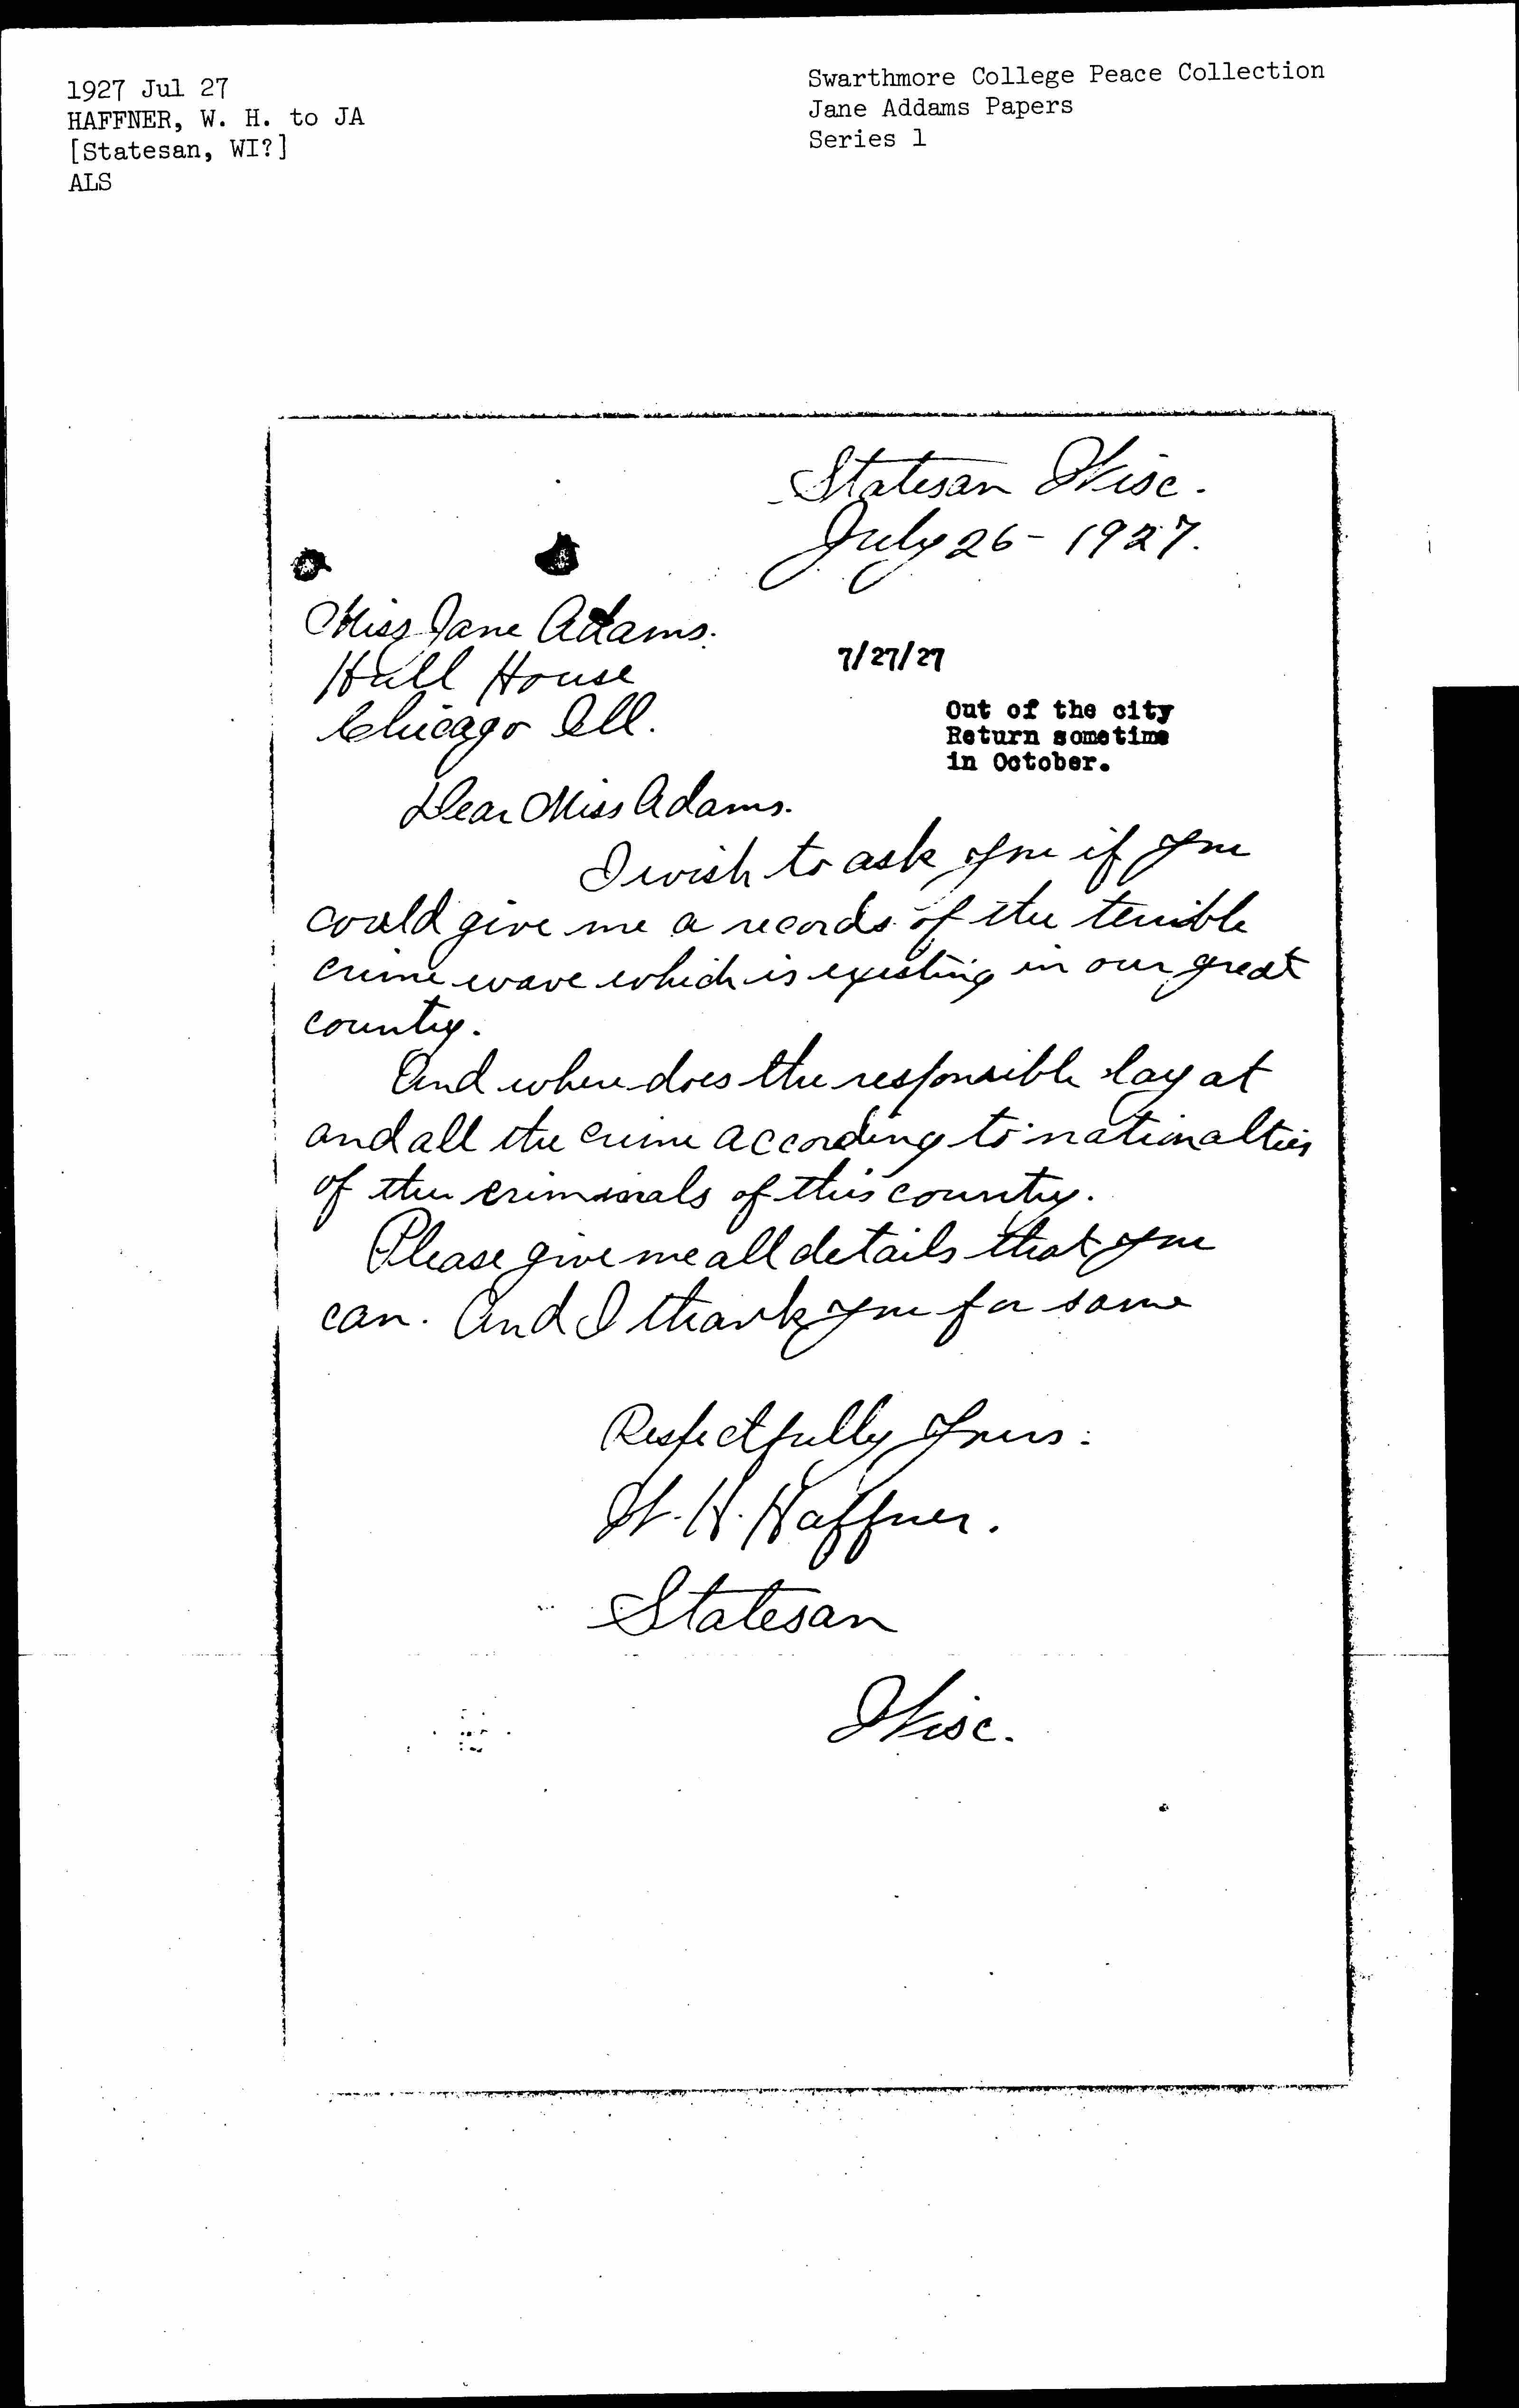 1927 Jul 27
HAFFNER, W. H. to JA
[Statesan, WI?]
ALS
Swarthmore College Peace Collection
Jane Addams Papers
Series 1
Statesan Wisc.
July 26 - 1927.
Miss Jane Adams.
Hull House
Chicago Ill.
7/27/27
Out of the city
Return sometime
in October.
Dear Miss Adams.
I wish to ask you if you
could give me a records of the terrible
crime wave which is existing in our great
country.
And where does the responsible lay at
and all the crime according to nationalties
of the criminals of this country.
Please give me all details that you
can. And I thank you for same
Respectfully Yours:
W. H. Haffner.
Statesan
Wisc.